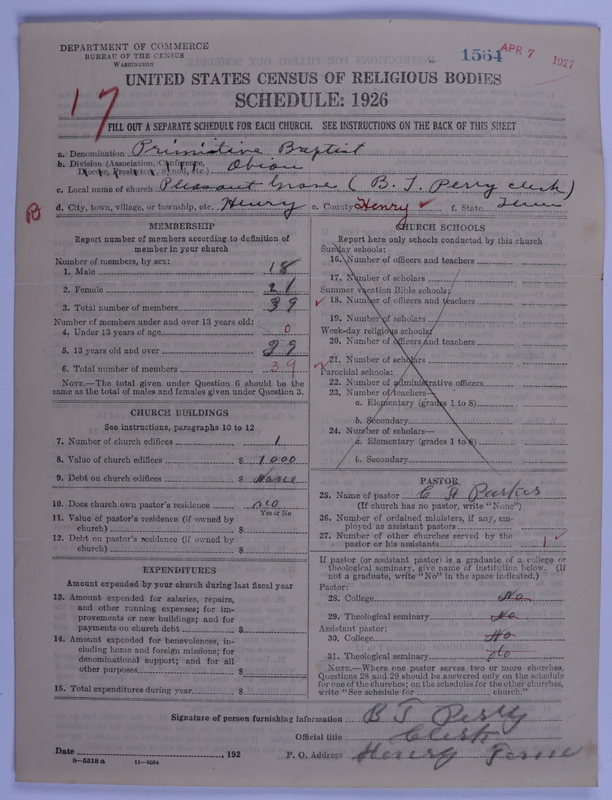 DEPARTMENT OF COMMERCE
BUREAU OF THE CENSUS
WASHINGTON
1564 APR 7 1927
UNITED STATES CENSUS OF RELIGIOUS BODIES
SCHEDULE: 1926
17
FILL OUT A SEPARATE SCHEDULE FOR EACH CHURCH. SEE INSTRUCTIONS ON THE BACK OF THIS SHEET
a. Denomination Primitive Baptist
b. Division (Association, Conference, Diocese, Presbytery, Synod, etc.) Obion
c. Local name of church Pleasant Grove (B. T. Perry clerk)
d. City, town, village, or township, etc. Henry e. County Henry ✓ f. State Tenn
MEMBERSHIP
Report number of members according to definition of
member in your church
Number of members, by sex:
1. Male 18
2. Female 21
3. Total number of members 39
Number of members under and over 13 years old:
4. Under 13 years of age 0
5. 13 years old and over 39
6. Total number of members 39
NOTE.—The total given under Question 6 should be the
same as the total of males and females given under Question 3.
CHURCH BUILDINGS
See instructions, paragraphs 10 to 12
7. Number of church edifices 1
8. Value of church edifices $ 1000
9. Debt on church edifices $ None
10. Does church own pastor's residence no
Yes or No
11. Value of pastor's residence (if owned by
church) $
12. Debt on pastor's residence (if owned by
church) $
EXPENDITURES
Amount expended by your church during last fiscal year
13. Amount expended for salaries, repairs,
and other running expenses; for im-
provements or new buildings; and for
payments on church debt $
14. Amount expended for benevolences, in-
cluding home and foreign missions; for
denominational support; and for all
other purposes $
15. Total expenditures during year $
CHURCH SCHOOLS
Report here only schools conducted by this church
Sunday schools:
16. Number of officers and teachers
17. Number of scholars
Summer vacation Bible schools:
✓ 18. Number of officers and teachers
19. Number of scholars
Week-day religious schools:
20. Number of officers and teachers
21. Number of scholars
Parochial schools:
22. Number of administrative officers
23. Number of teachers—
a. Elementary (grades 1 to 8)
b. Secondary
24. Number of scholars—
a. Elementary (grades 1 to 8)
b. Secondary
PASTOR
25. Name of pastor C A Parker
(If church has no pastor, write "None")
26. Number of ordained ministers, if any, em-
ployed as assistant pastors
27. Number of other churches served by the
pastor or his assistants 1 ✓
If pastor (or assistant pastor) is a graduate of a college or
theological seminary, give name of institution below. (If
not a graduate, write "No" in the space indicated.)
Pastor:
28. College No
29. Theological seminary No
Assistant pastor:
30. College No
31. Theological seminary do
NOTE.—Where one pastor serves two or more churches,
Questions 28 and 29 should be answered only on the schedule
for one of the churches; on the schedules for the other churches,
write "See schedule for church."
Signature of person furnishing information B T Perry
Official title Clerk
Date , 192 P. O. Address Henry Tenn
8—5518 a 11—9054